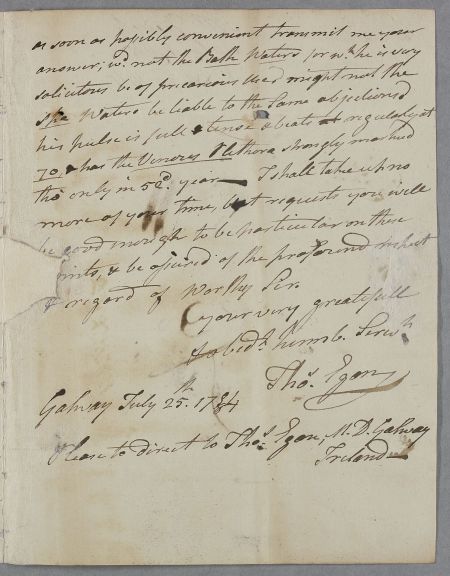 as soon as possibly convenient transmit me your
answer, wd. not the Bath Waters for wh. he is very
solicitous be of precarious Use & might not the
Spa Waters be liable to the Same objections
his pulse is full & tense & beats regularly at
70, & has the Venous Plethora strongly marked
tho' only in 52d. year — I shall take up no
more of your time, but requests you will
be good enough to be particular on these
points, & be assured of the profound respect
& regard of Worthy Sir.
your very greatefull
& obedt. humb. Servt.
Thos. Egan
Galway July 25th. 1784
Please to direct to Thos. Egan, M.D. Galway
Ireland